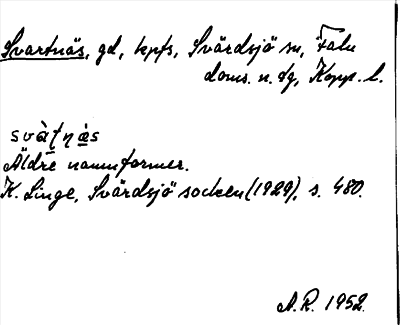 Svartnäs, gd, kpfs, Svärdsjö sn, Falu
doms. n. tg, Kopp. l.
svàʈɳàs
Äldre namnformer.
K. Linge, Svärdsjö socken (1929), s. 480.
A.R. 1952.